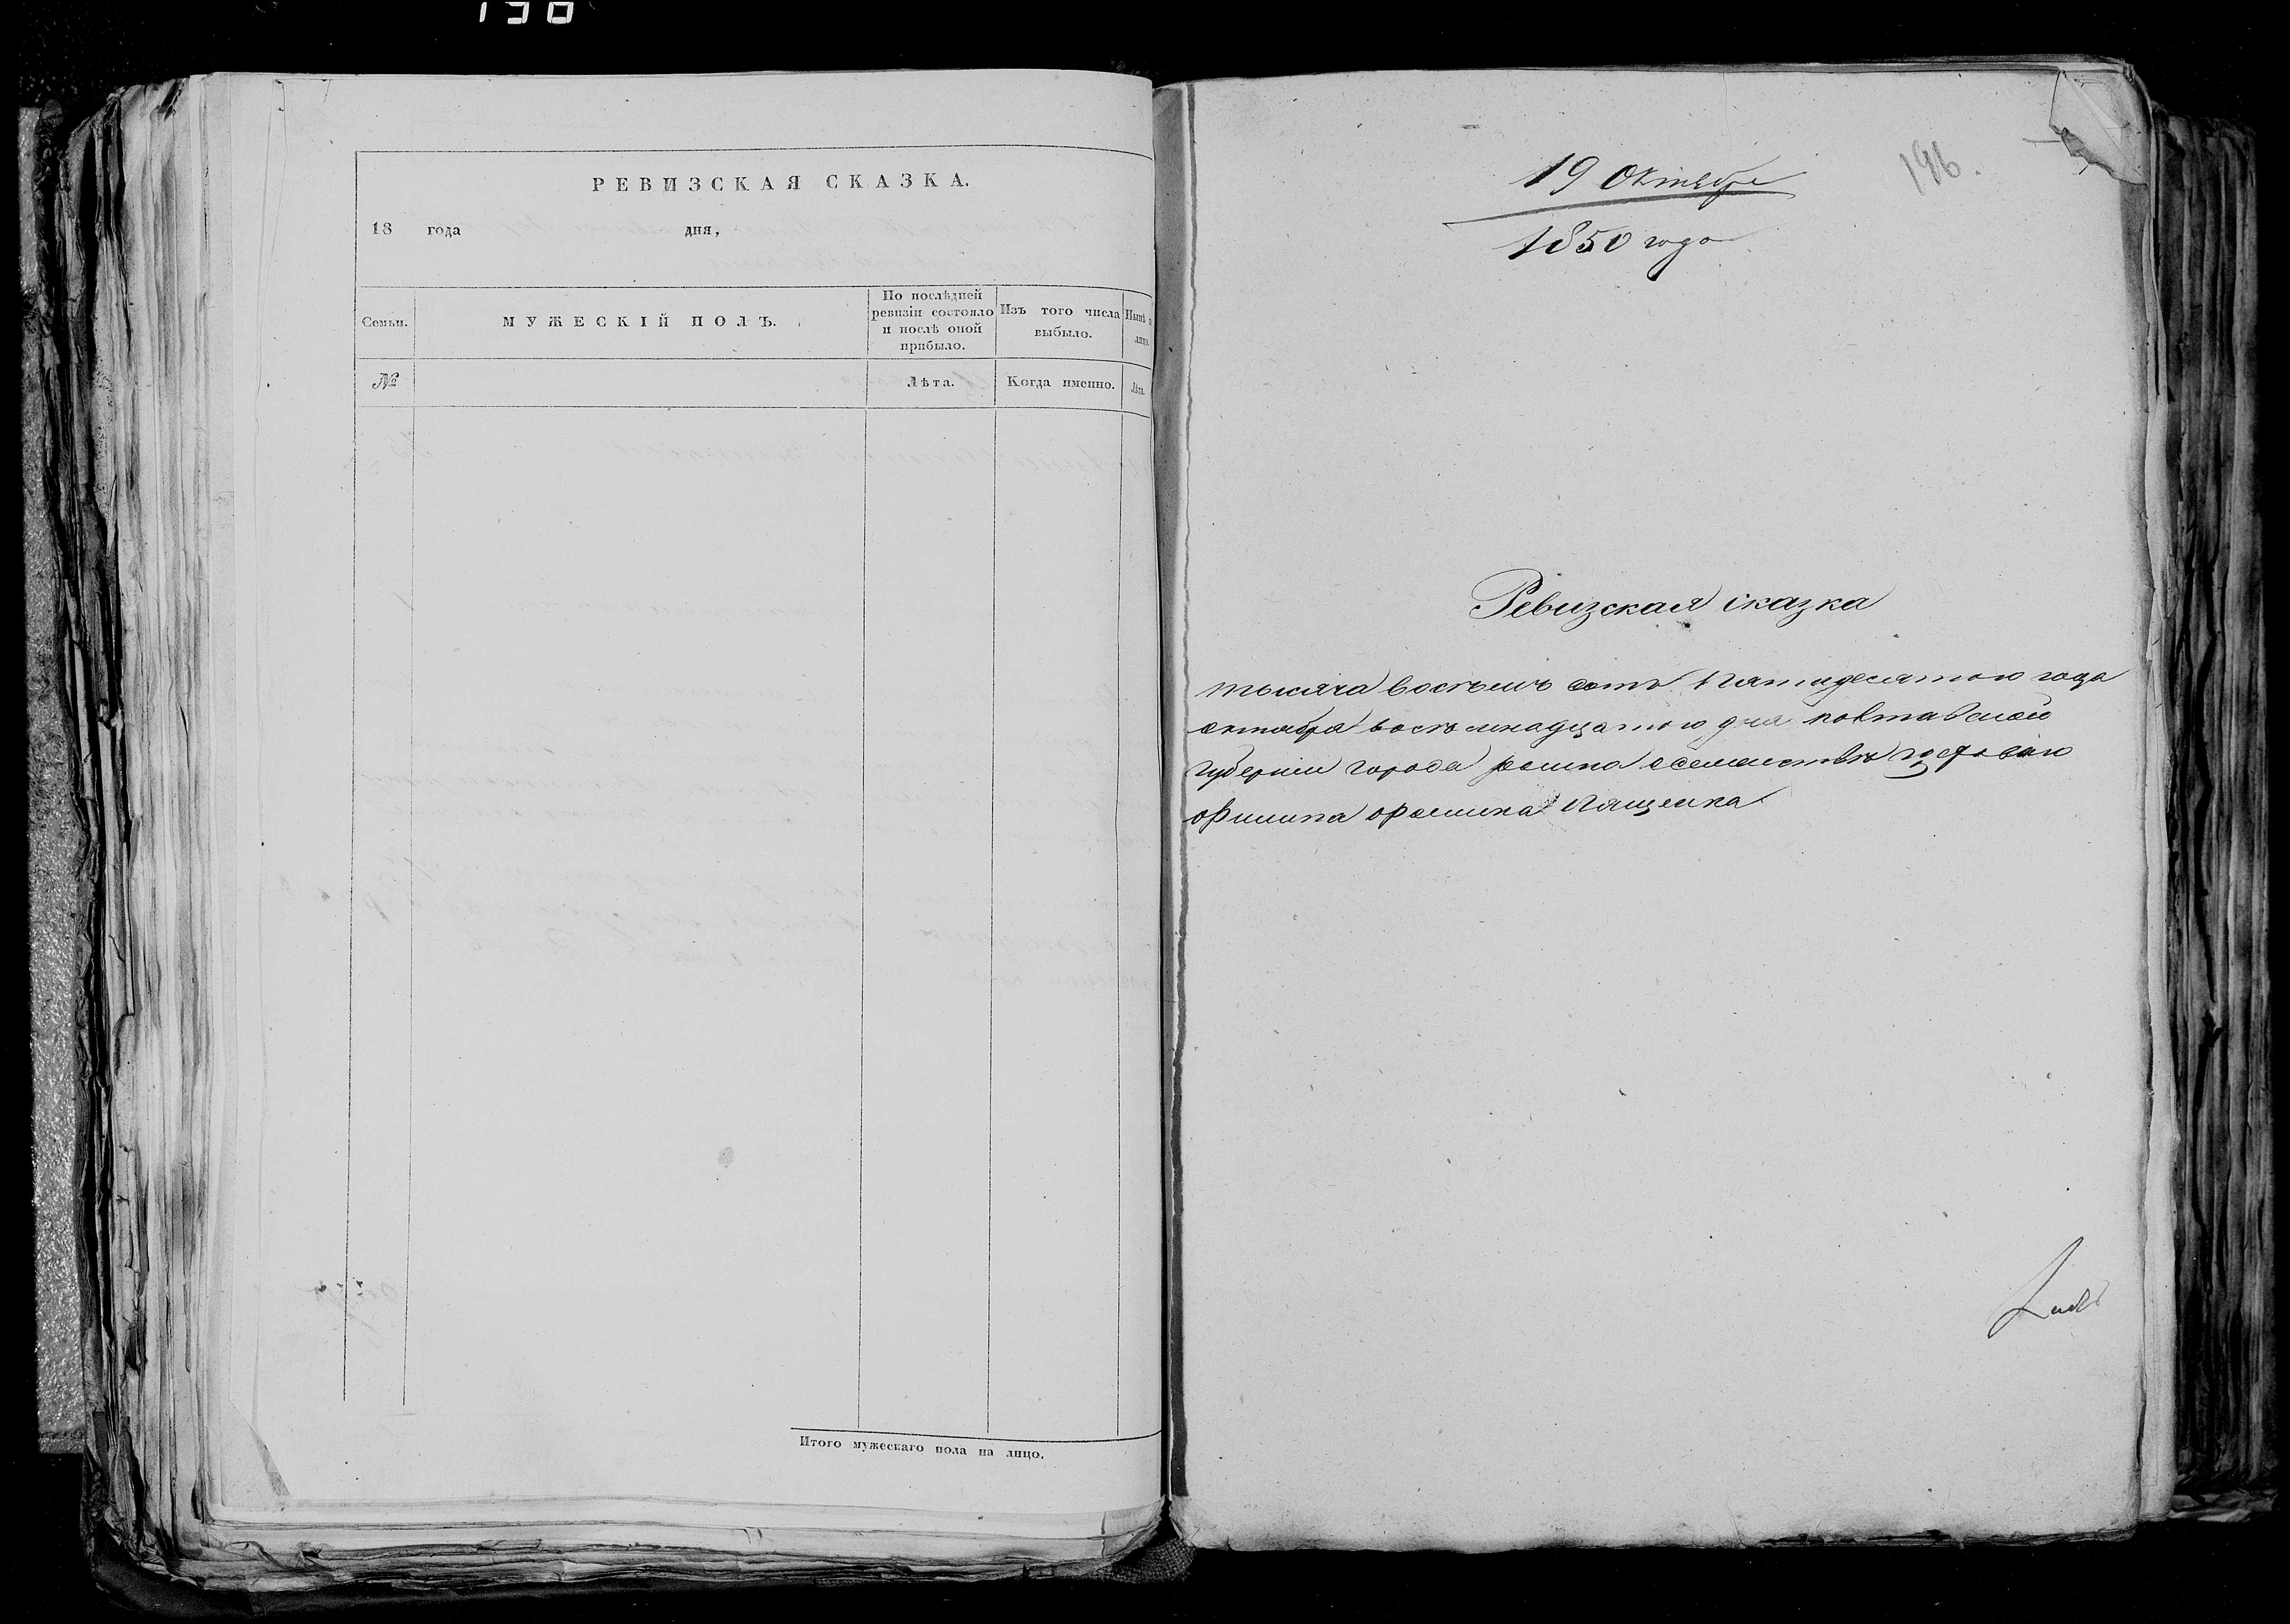 РЕВИЗСКАЯ СКАЗКА.
18 года дня,
Семьи.
МУЖЕСКІЙ ПОЛЪ.
По послѣдней ревизіи состояло и послѣ оной прибыло.
Изъ того числа выбыло.
Нынѣ
лицо.
№
Лѣта.
Когда именно.
Лѣта.
Итого мужескаго пола на лицо.
19 Октября
1850 года
196.
Ревизская сказка
тысяча восемь сотъ пятидесятого года
октября восемнадцатого дня полтавской
губерніи города ромна о семействѣ
Филипа Фомина Пащенка